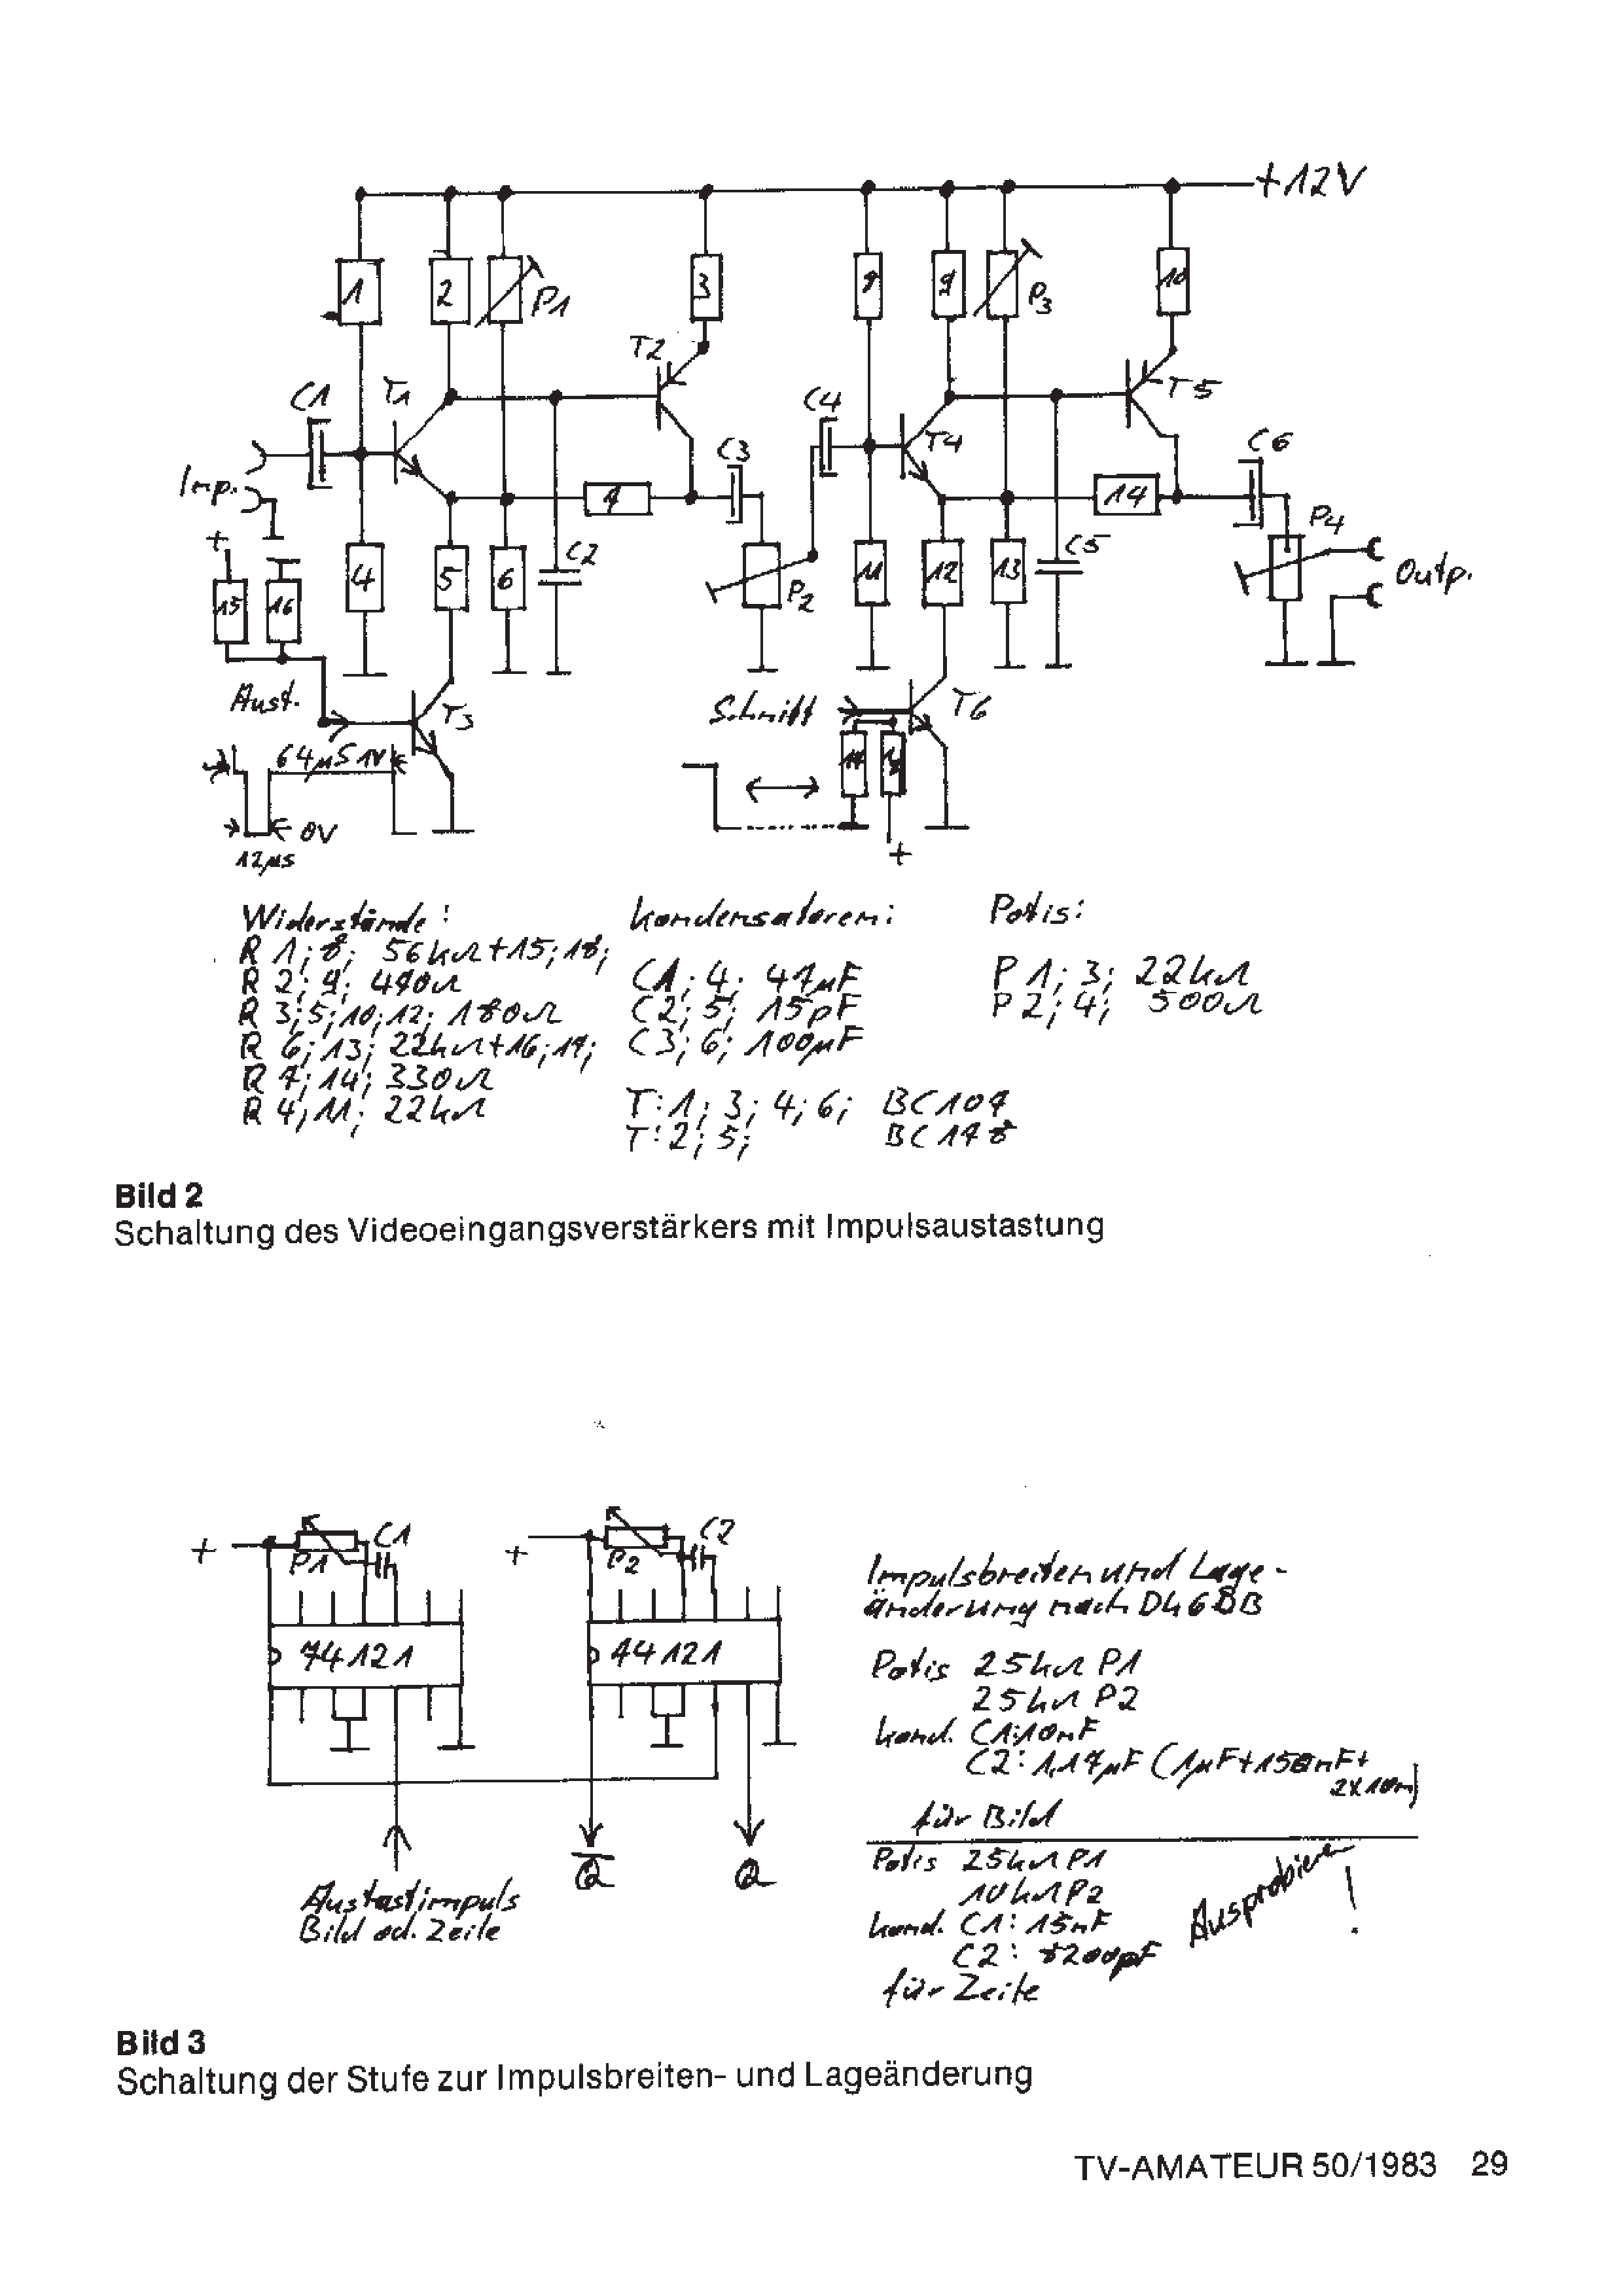 +12V
1
2
P1
3
8
9
P3
10
T2
T5
C1
T1
C4
T4
C6
Inp.
C3
7
14
P4
+
C2
C5
Outp.
15
16
4
5
6
P2
11
12
13
Aust.
T3
Schnitt
T6
64µS 1V
17
18
0V
12µs
+
Widerstände:
R 1; 8; 56kΩ+15;18;
R 2; 9; 470Ω
R 3;5;10;12; 180Ω
R 6;13; 22kΩ+16;17;
R 7;14; 330Ω
R 4;11; 22kΩ
Kondensatoren:
C1; 4; 47µF
C2; 5; 15pF
C3; 6; 100µF
T:1; 3; 4; 6; BC107
T:2; 5; BC178
Potis:
P 1; 3; 22kΩ
P 2; 4; 500Ω
Bild 2
Schaltung des Videoeingangsverstärkers mit Impulsaustastung
+
P1
C1
+
P2
C2
74121
74121
Q
Q
Austastimpuls
Bild od. Zeile
Impulsbreiten und Lage-
änderung nach DL6BB
Potis 25kΩ P1
25kΩ P2
Kond. C1:10nF
C2: 1,17µF (1µF+150nF+
2x10n)
für Bild
Potis 25kΩ P1
10kΩ P2
Kond. C1: 15nF
C2: 8200pF
für Zeile
Ausprobieren!
Bild 3
Schaltung der Stufe zur Impulsbreiten- und Lageänderung
TV-AMATEUR 50/1983 29